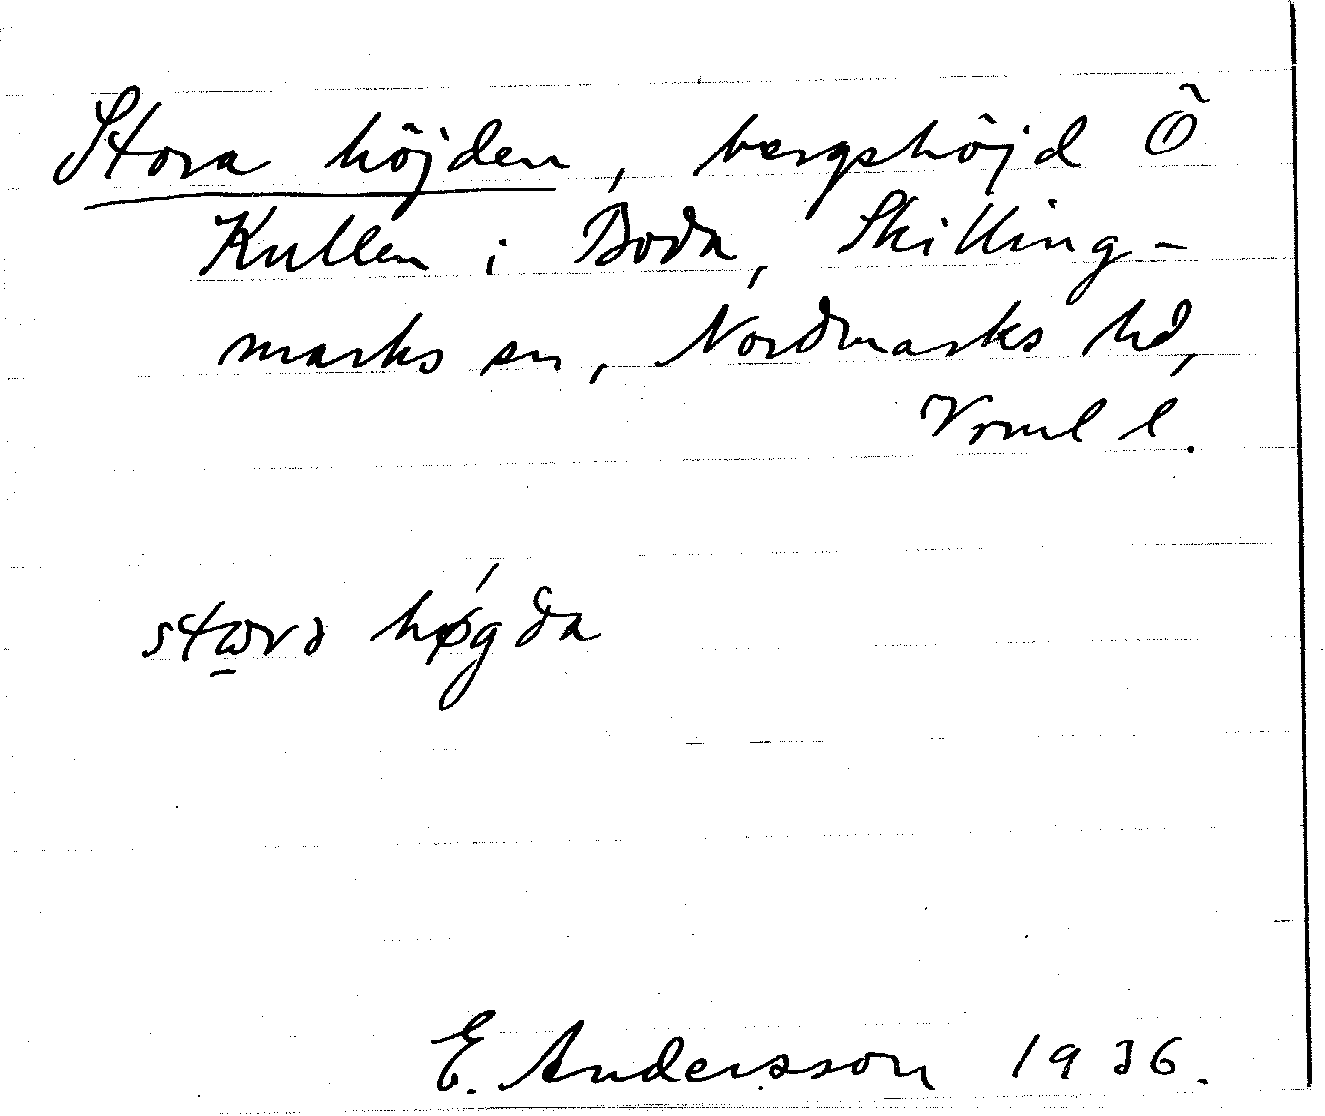 Stora höjden, bergshöjd Ö
Kullen i Boda, Skilling-
marks sn, Nordmarks hd,
Vrml l.
stωrə hǿgda
E. Andersson 1936.